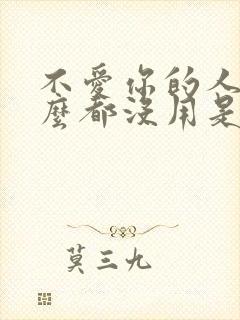 不愛你的人
麼都沒用是
莫三九